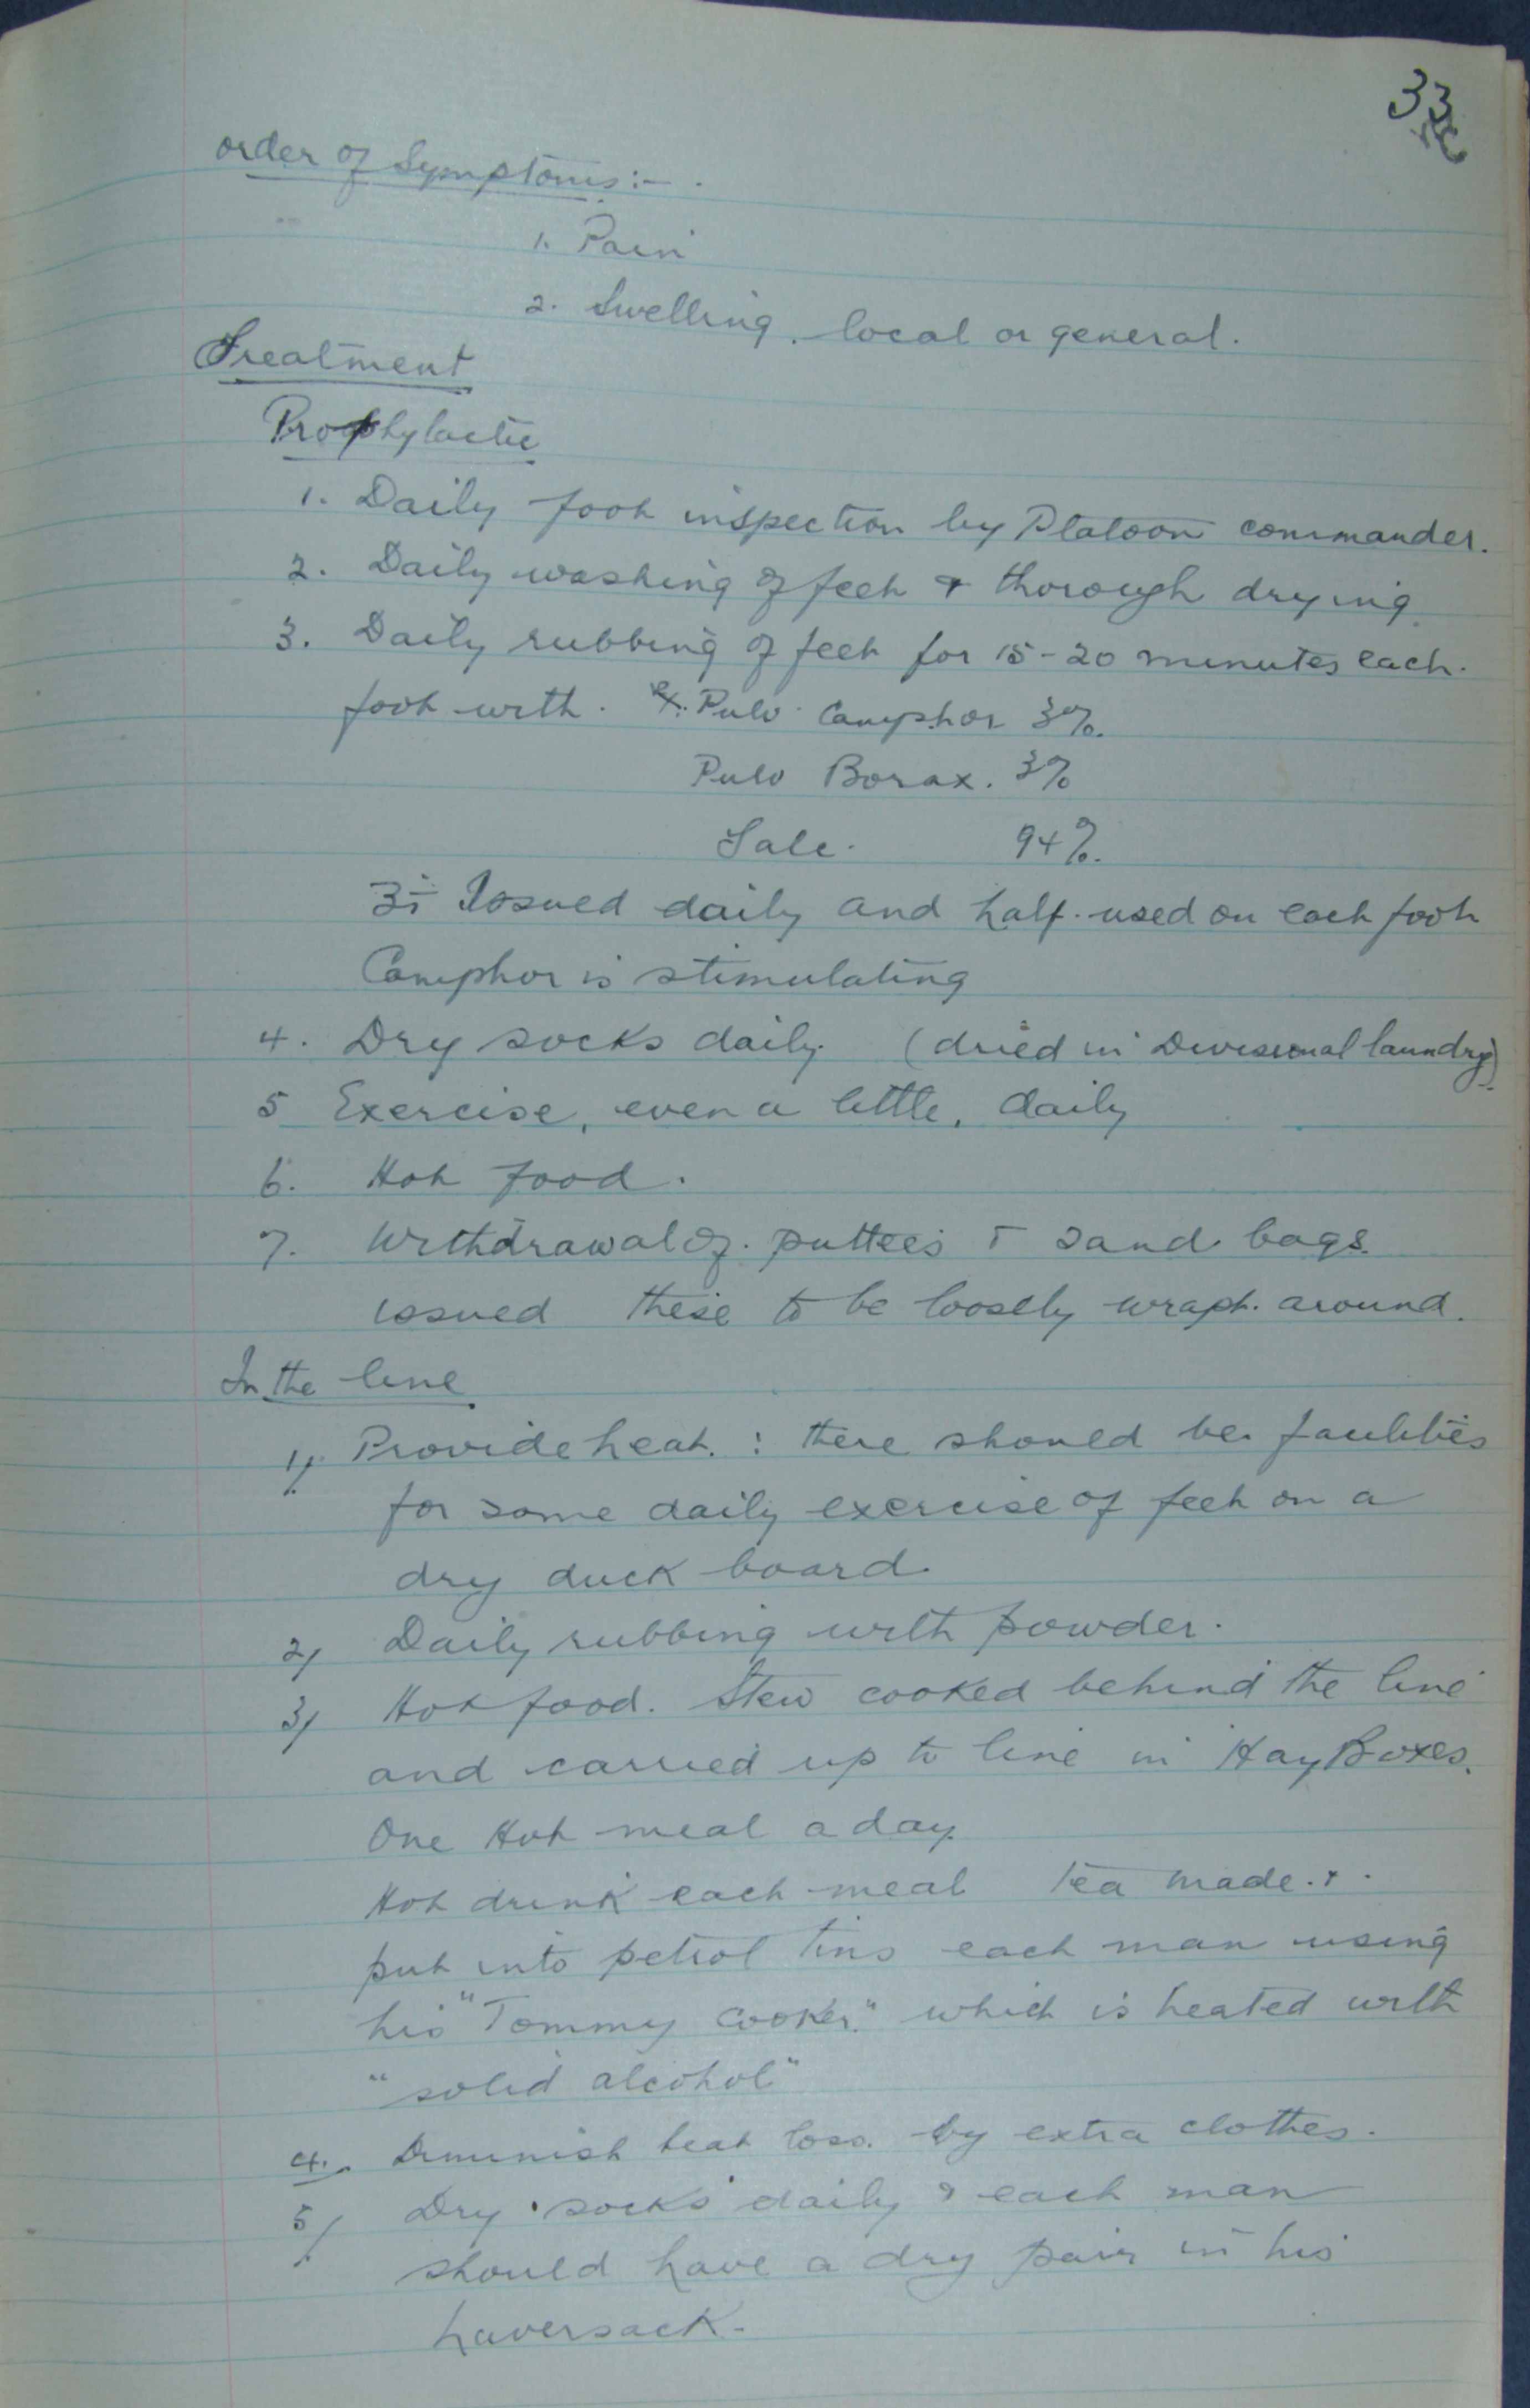 33
order of Symptoms:-
1. Pain
2. Swelling. local or general.
Treatment
Prophylactic
1. Daily foot inspection by Platoon commander.
2. Daily washing of feet & thorough drying.
3. Daily rubbing of feet for 15-20 minutes each.
foot with. Rx: Pulv. Camphor 3%.
Pulv Borax. 3%
Talc. 94%.
ʒi Issued daily and half used on each foot
Camphor is stimulating
4. Dry socks daily. (dried in Divisional laundry).
5 Exercise, even a little, daily
6. Hot food.
7. Withdrawal of puttees & sand bags.
issued these to be loosely wrapt. around.
In the line
1/. Provide heat. : there should be facilities
for some daily exercise of feet on a
dry duck board.
2/ Daily rubbing with powder.
3/ Hot food. Stew cooked behind the line
and carried up to line in Hay Boxes.
One Hot meal a day.
Hot drink each meal tea made. &.
put into petrol tins each man using
his "Tommy Cooker" which is heated with
"solid alcohol"
4. Diminish heat loss. by extra clothes.
5/ Dry socks daily & each man
should have a dry pair in his
haversack.